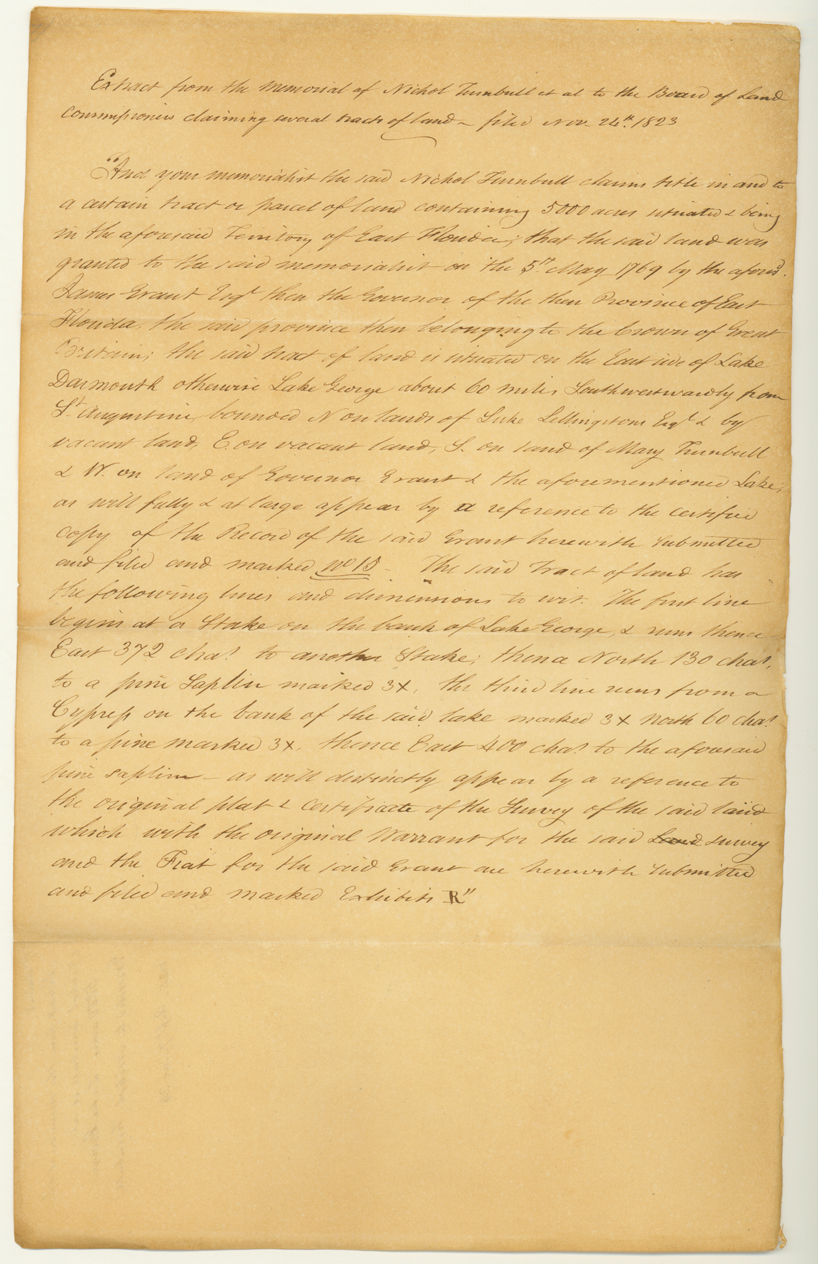 Extract from the Memorial of Nichol Turnbull et al to the Board of Land
Commissioners claiming several tracts of land – filed Nov. 24th. 1823
"And your memorialist the said Nichol Turnbull claims title in and to
a certain tract or parcel of land containing 5000 acres situated & being
in the aforesaid Territory of East Florida; that the said land was
granted to the said memorialist on the 5th May 1769 by the aforesd.
James Grant Esqr then the Governor of the then Province of East
Florida, the said province then belonging to the Crown of Great
Britain; the said tract of land is situated on the East side of Lake
Darmouth otherwise Lake George about 60 miles Southwestwardly from
St. Augustine, bounded N on lands of Luke Lillingstons Esqr & by
vacant land, E. on vacant land, S. on land of Mary Turnbull
& W. on land of Governor Grant & the aforementioned Lake,
as will fully & at large appear by a reference to the certified
copy of the Record of the said Grant herewith submitted
and filed and marked No The said Tract of land has
the following lines and dimensions to wit. The first line
begins at a Stake on the bank of Lake George, & runs thence
East 372 chas. to another Stake; thence North 130 chas.
to a pine Saplin marked 3X. the third line runs from a
Cypress on the bank of the said lake marked 3X North 60 chas
to a pine marked 3X. thence East 400 chas to the aforesaid
pine saplin – as will distinctly appear by a reference to
the original plat & certificate of the Survey of the said land
which with the original Warrant for the said Land survey
and the Fiat for the said Grant are herewith submitted
and filed and marked Exhibits R"